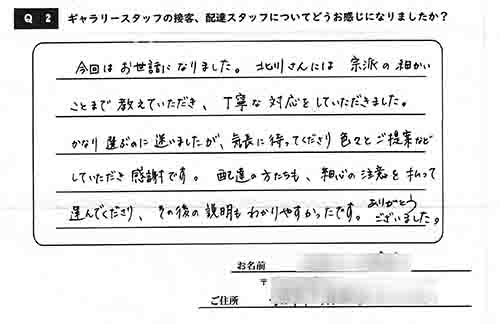 Q 2 ギャラリースタッフの接客、配達スタッフについてどうお感じになりましたか?
今回はお世話になりました。北川さんには 宗派の細かい
ことまで教えていただき、丁寧な対応をしていただきました。
かなり選ぶのに迷いましたが、気長に待ってくださり色々とご提案など
していただき感謝です。配達の方たちも、細心の注意を払って
運んでくださり、その後の説明もわかりやすかったです。ありがとうございました。
お名前
〒
ご住所